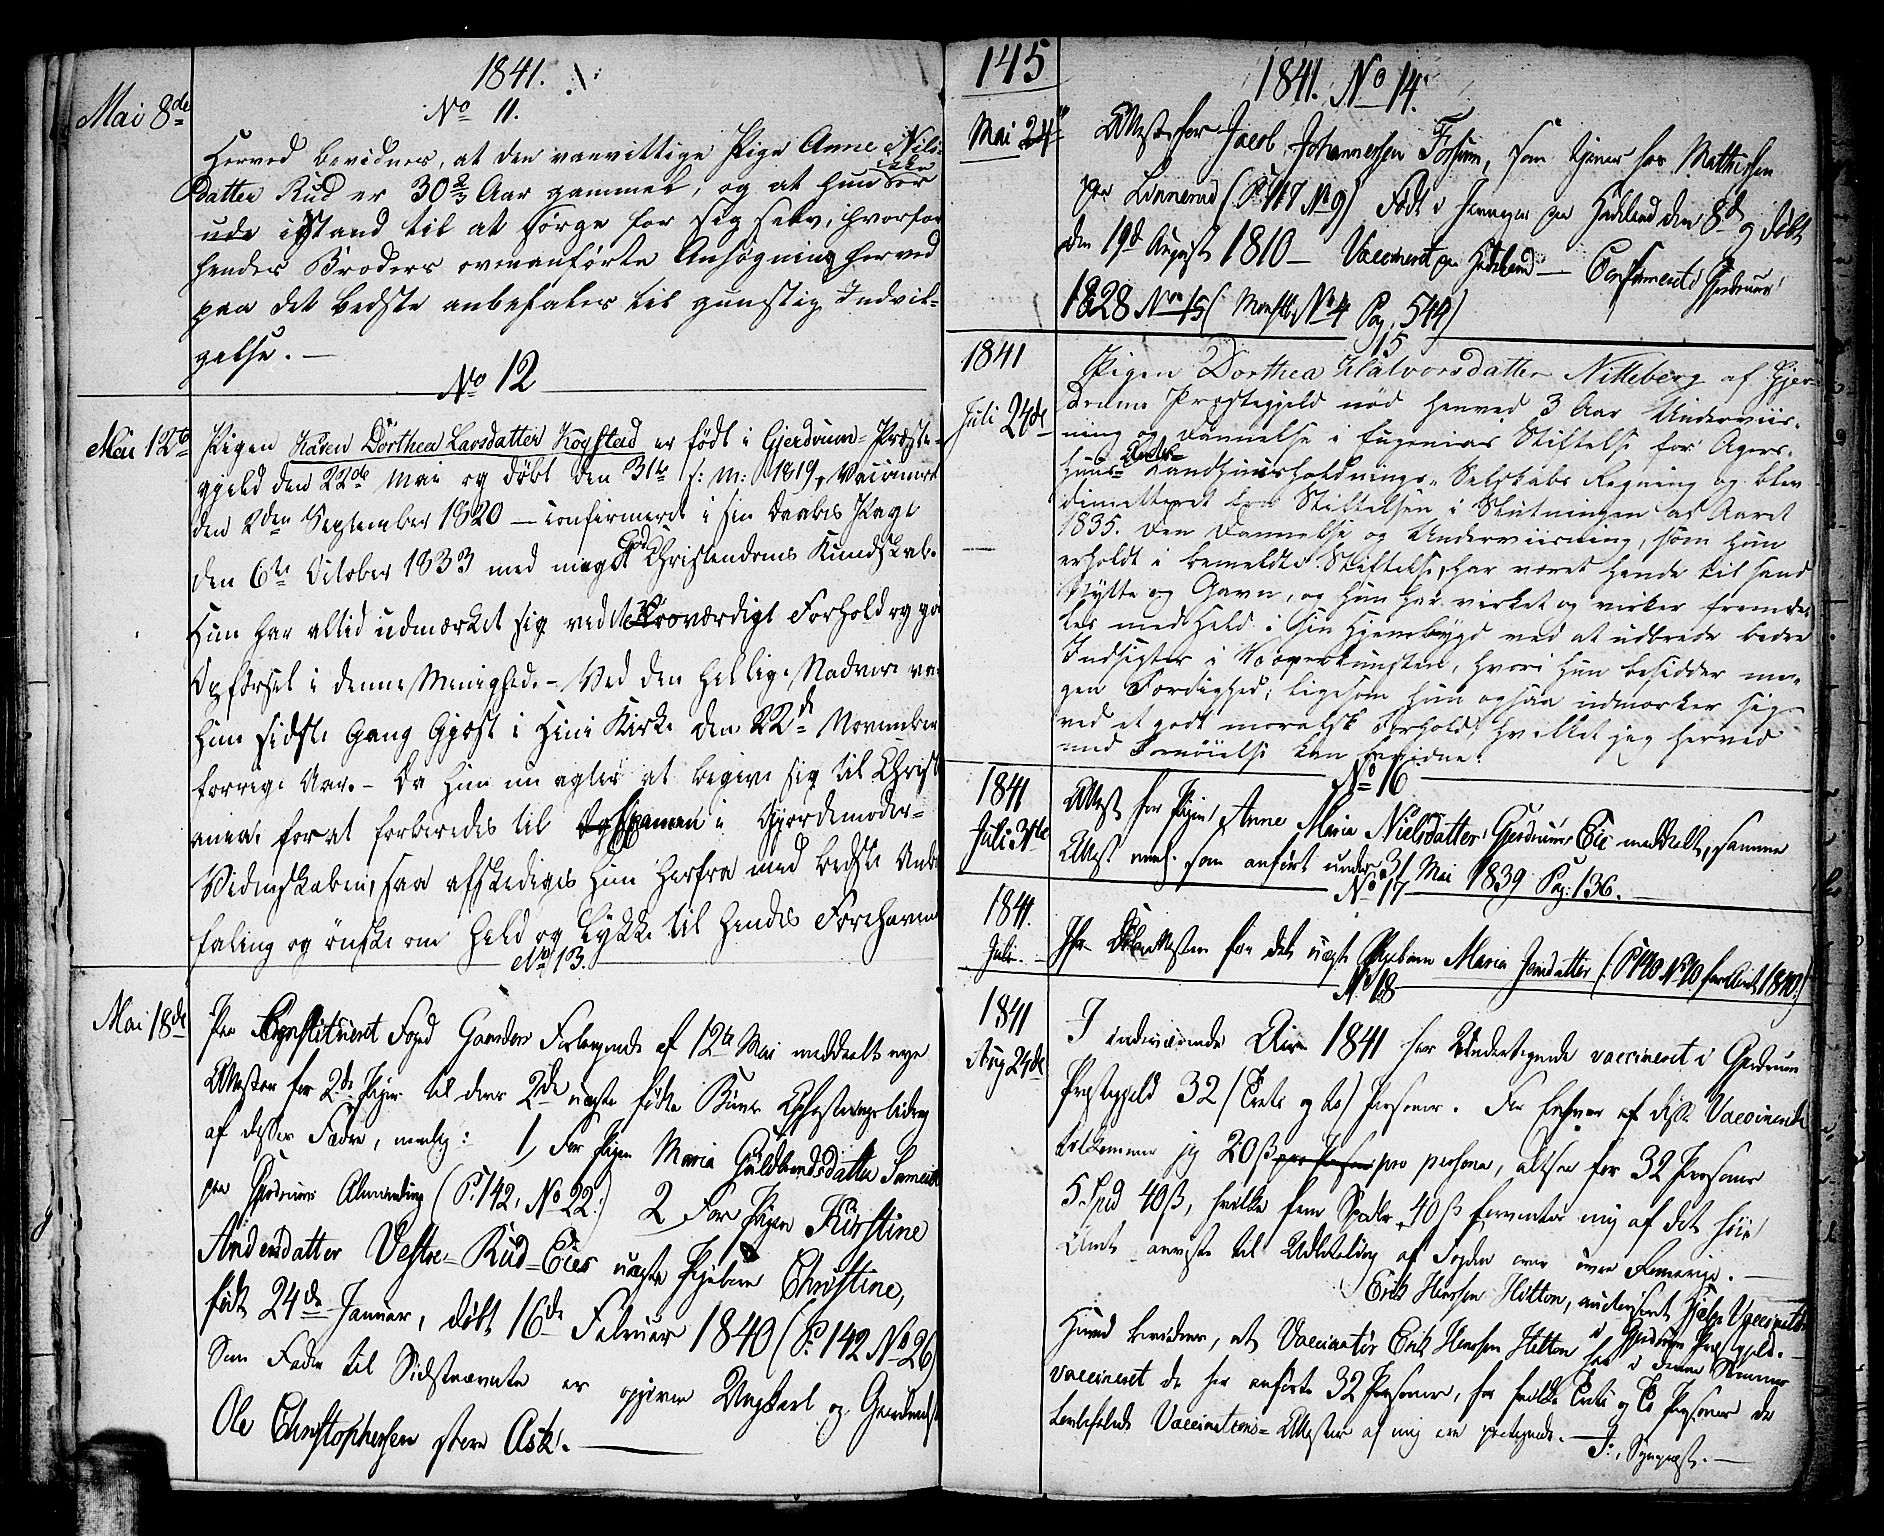 1841.
Mai 8de
No 11.
Herved bevidnes, at den vanvittige Pige Anne Nils-
datter Rud er 30 2/3 Aar gammel, og at hun er
ude istand til at sørge for sig selv, hvorfor
hendes Broders ovenanførte Ansøgning herved
paa det bedste anbefales til gunstig Indvil-
gelse. —
No 12
Mai 12te
Pigen Karen Dorthea Larsdatter Kogstad er født i Gjerdrum- Præste-
gjeld den 22de Mai og døbt den 31te s: M: 1819, Vaccineret
den 2den September 1820 — confirmeret i sin Daabs Pagt
den 6te October 1833 med meget god Christendoms Kundskab.
Hun har altid udmærket sig ved et roesværdigt Forhold og god
Opførsel i denne Menighed. – Ved den hellige Nadvere var
hun sidste Gang Gjæst i Heni Kirke den 22de November
forrige Aar. – Da hun nu agter at begive sig til Christi-
ania for at forberedes til Examen i Gjordemoder-
Videnskaben, saa afskediges hun herfra med bedste Anbe-
faling og ønske om Held og Lykke til hendes Forehavende
No 13.
Mai 18de
Paa Constitueret Foged Forlangende af 12te Mai meddeelt nye
Attester for 2de Piger til deres 2de uægte fødte Børns Opfostringsbidrag
af disses Fædre, nemlig: 1, For Pigen Maria Guldbrandsdatter
paa Gjerdrums Almending (P. 142, No 22.) 2 For Pigen Kirstine
Andersdatter Vestre-Rud-Eies uægte Pigebarn Christine,
født 24de Januar, døbt 16de Februar 1840 (P. 142 No 26)
Som Fader til Sidstnævnte er opgiven Ungkarl og
Ole Christophersen østre Ask. —
145
1841. No 14.
Mai 24
Attest for Jacob Johannessen Fossum, som tjener hos Mathissen
paa Linnerud (P. 117 No 9) Født i Jevnager paa Hadeland den 8de og døbt
den 19de August 1810 — Vaccineret paa Hadeland — Confirmeret i Gjerdrum
1828 No 15 ( No 4 Pag. 544)
15
1841
Juli 24de
Pigen Dorthea Halvorsdatter Nitteberg af Gjer-
drums Præstegjeld nød henved 3 Aar Underviis-
ning og Dannelse i Eugenias Stiftelse for Agers-
huus- Amts- Landhuusholdnings- Selskabs Regning og blev
dimitteret fra Stiftelsen i Slutningen af Aaret
1835. Den Dannelse og Underviisning, som hun
erholdt i bemeldte Stiftelse, har været hende til sand
Nytte og Gavn, og hun har virket og virker fremde-
les med Held i sin Hjembygd ved at udbrede bedre
Indsigter i Væverkunsten, hvori hun besidder me-
gen Færdighed; ligesom hun ogsaa udmærker sig
ved et godt moralsk Forhold, hvilket jeg herved
med Fornøielse kan bevidne.
No 16
1841
Juli 31te
Attest for Pigen Anne Maria Nielsdatter Gjerdrum Eie meddeelt, samme
Attest som anført under 31 Mai 1839 Pag. 136.
No 17
1841.
Juli
Attesten for det uægte Pigebarn Maria Jensdatter (P. 140 No 10 for Aaret 1840.)
No 18
1841
Aug 24de
I indeværende Aar 1841 har Undertegnede vaccineret i Gjerdrum
Præstegjeld 32 (Treti og to) Personer. For Enhver af disse Vaccinerede
tilkommer jeg 20 ß pro persona, altsaa for 32 Personer
5 Spd 40 ß, hvilke fem Spdlr 40 ß forventes mig af det høie
Amt anviste til Udbetaling af Fogden over øvre Romerige. —
Erik Hansen Hilton, auctoriseret Hjelpe Vaccinatør
i Gjerdrum Præstegjeld. —
Herved bevidnes, at Vaccinatør Erik Hansen Hilton har i denne Sommer
vaccineret de her anførte 32 Personer, for hvilke Treti og To Personer de
befalede Vaccinations- Attester af mig ere paategnede. —
J:, Sognepræst. —